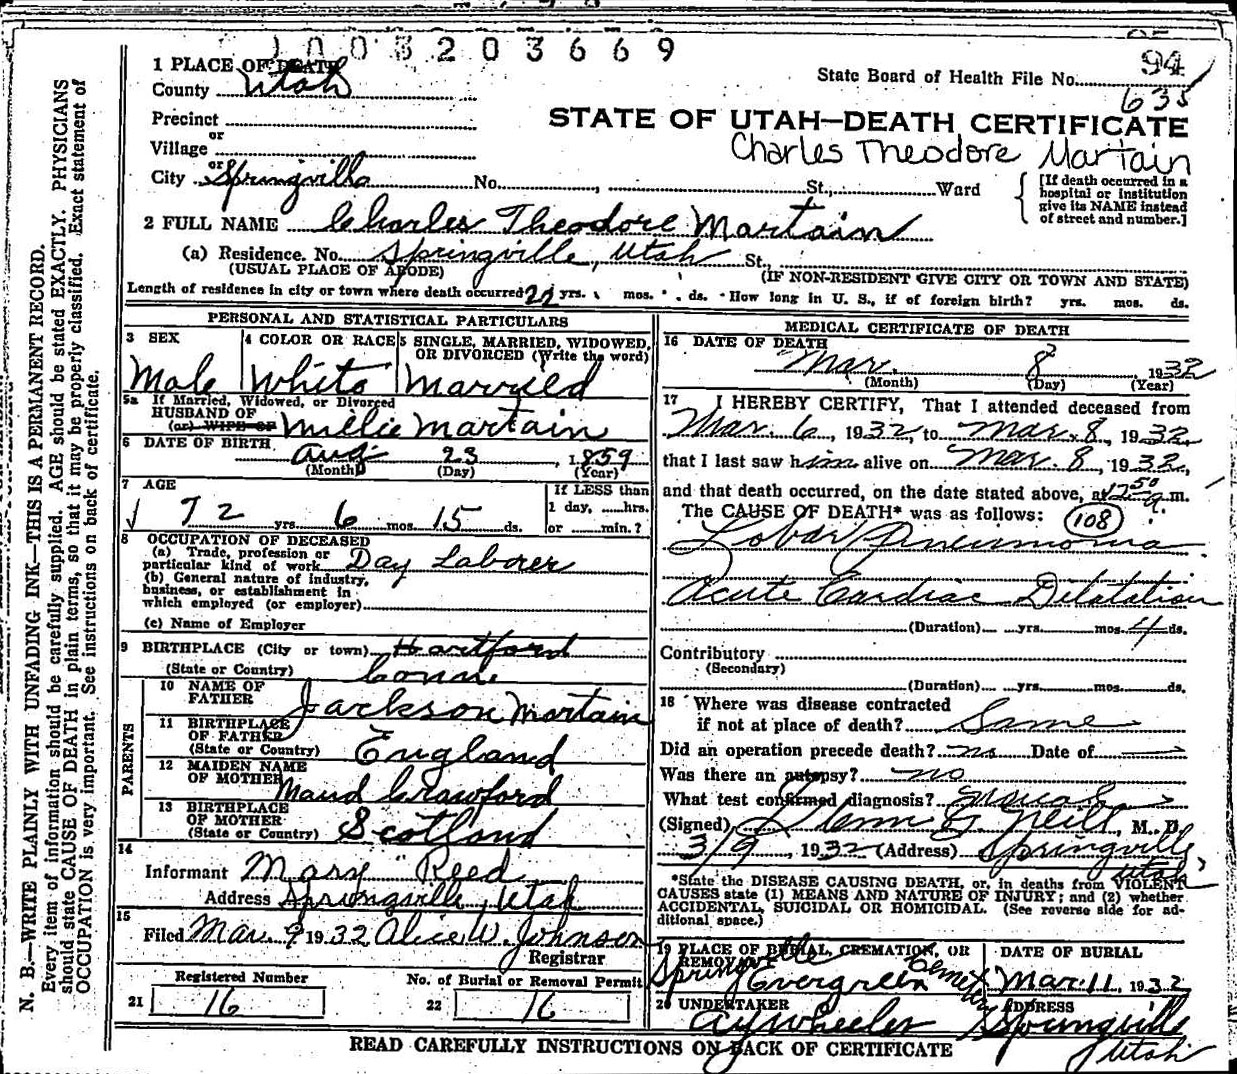 1003203669
1 PLACE OF DEATH
County Utah
State Board of Health File No. 94
635
Precinct
or
Village
or
City Springville No. , St., Ward
STATE OF UTAH—DEATH CERTIFICATE
Charles Theodore Martain
[If death occurred in a
hospital or institution
give its NAME instead
of street and number.]
2 FULL NAME Charles Theodore Martain
(a) Residence. No. Springville, Utah St.,
(USUAL PLACE OF ABODE) (IF NON-RESIDENT GIVE CITY OR TOWN AND STATE)
Length of residence in city or town where death occurred 22 yrs. mos. ds. How long in U. S., if of foreign birth? yrs. mos. ds.
PERSONAL AND STATISTICAL PARTICULARS
3 SEX
Male
4 COLOR OR RACE
White
5 SINGLE, MARRIED, WIDOWED,
OR DIVORCED (Write the word)
Married
5a If Married, Widowed, or Divorced
HUSBAND OF
(or) WIFE OF Millie Martain
6 DATE OF BIRTH Aug 23, 1859
(Month) (Day) (Year)
7 AGE
72 yrs. 6 mos. 15 ds.
If LESS than
1 day, ......hrs.
or ......min.?
8 OCCUPATION OF DECEASED
(a) Trade, profession or
particular kind of work Day Laborer
(b) General nature of industry,
business, or establishment in
which employed (or employer)
(c) Name of Employer
9 BIRTHPLACE (City or town) Hartford
(State or Country) Conn.
PARENTS
10 NAME OF
FATHER Jackson Martain
11 BIRTHPLACE
OF FATHER
(State or Country) England
12 MAIDEN NAME
OF MOTHER Maud Crawford
13 BIRTHPLACE
OF MOTHER
(State or Country) Scotland
14
Informant Mary Reed
Address Springville, Utah
15
Filed Mar. 9 1932 Alice W. Johnson
Registrar
Registered Number
21 16
No. of Burial or Removal Permit
22 16
MEDICAL CERTIFICATE OF DEATH
16 DATE OF DEATH
Mar. 8 1932
(Month) (Day) (Year)
17 I HEREBY CERTIFY, That I attended deceased from
Mar. 6, 1932, to Mar. 8, 1932,
that I last saw him alive on Mar. 8, 1932,
and that death occurred, on the date stated above, at 12 50 a.m.
The CAUSE OF DEATH* was as follows: 108
Lobar Pneumonia
Acute Cardiac Dilatation
(Duration) yrs. mos. 4 ds.
Contributory
(Secondary)
(Duration) yrs. mos. ds.
18 Where was disease contracted
if not at place of death? Same
Did an operation precede death? no Date of
Was there an autopsy? no
What test confirmed diagnosis?
(Signed) Glenn G. Neill, M. D.
3/9, 1932 (Address) Springville,
Utah
*State the DISEASE CAUSING DEATH, or, in deaths from VIOLENT
CAUSES state (1) MEANS AND NATURE OF INJURY; and (2) whether
ACCIDENTAL, SUICIDAL OR HOMICIDAL. (See reverse side for ad-
ditional space.)
19 PLACE OF BURIAL, CREMATION, OR
REMOVAL
Springville
Evergreen Cemetery
DATE OF BURIAL
Mar. 11, 1932
20 UNDERTAKER
A Y Wheeler
ADDRESS
Springville
Utah
READ CAREFULLY INSTRUCTIONS ON BACK OF CERTIFICATE
N. B.—WRITE PLAINLY WITH UNFADING INK—THIS IS A PERMANENT RECORD.
Every item of information should be carefully supplied. AGE should be stated EXACTLY. PHYSICIANS
should state CAUSE OF DEATH in plain terms, so that it may be properly classified. Exact statement of
OCCUPATION is very important. See instructions on back of certificate.